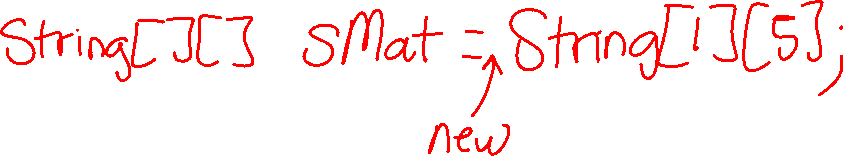 String[][] sMat = String[1][5];
new